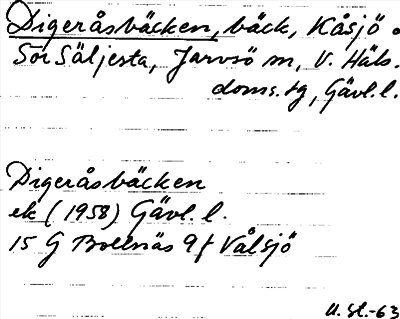 Digeråsbäcken, bäck, Kåsjö o
Sör Säljesta, Järvsö sn, V. Häls.
doms.sg, Gävl.l.
Digeråsbäcken
ek (1958) Gävl. l.
15 G Bollnäs 9f Vålsjö
U. St.-63